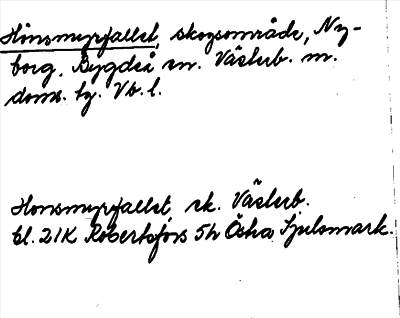 Hönsmyrfallet, skogsområde, Ny-
borg, Bygdeå sn. Västerb. m.
doms. tg. Vb. l.
Honsmyrfallet, sk. Västerb.
bl. 21K Robertsfors 5h Östra Sjulsmark.